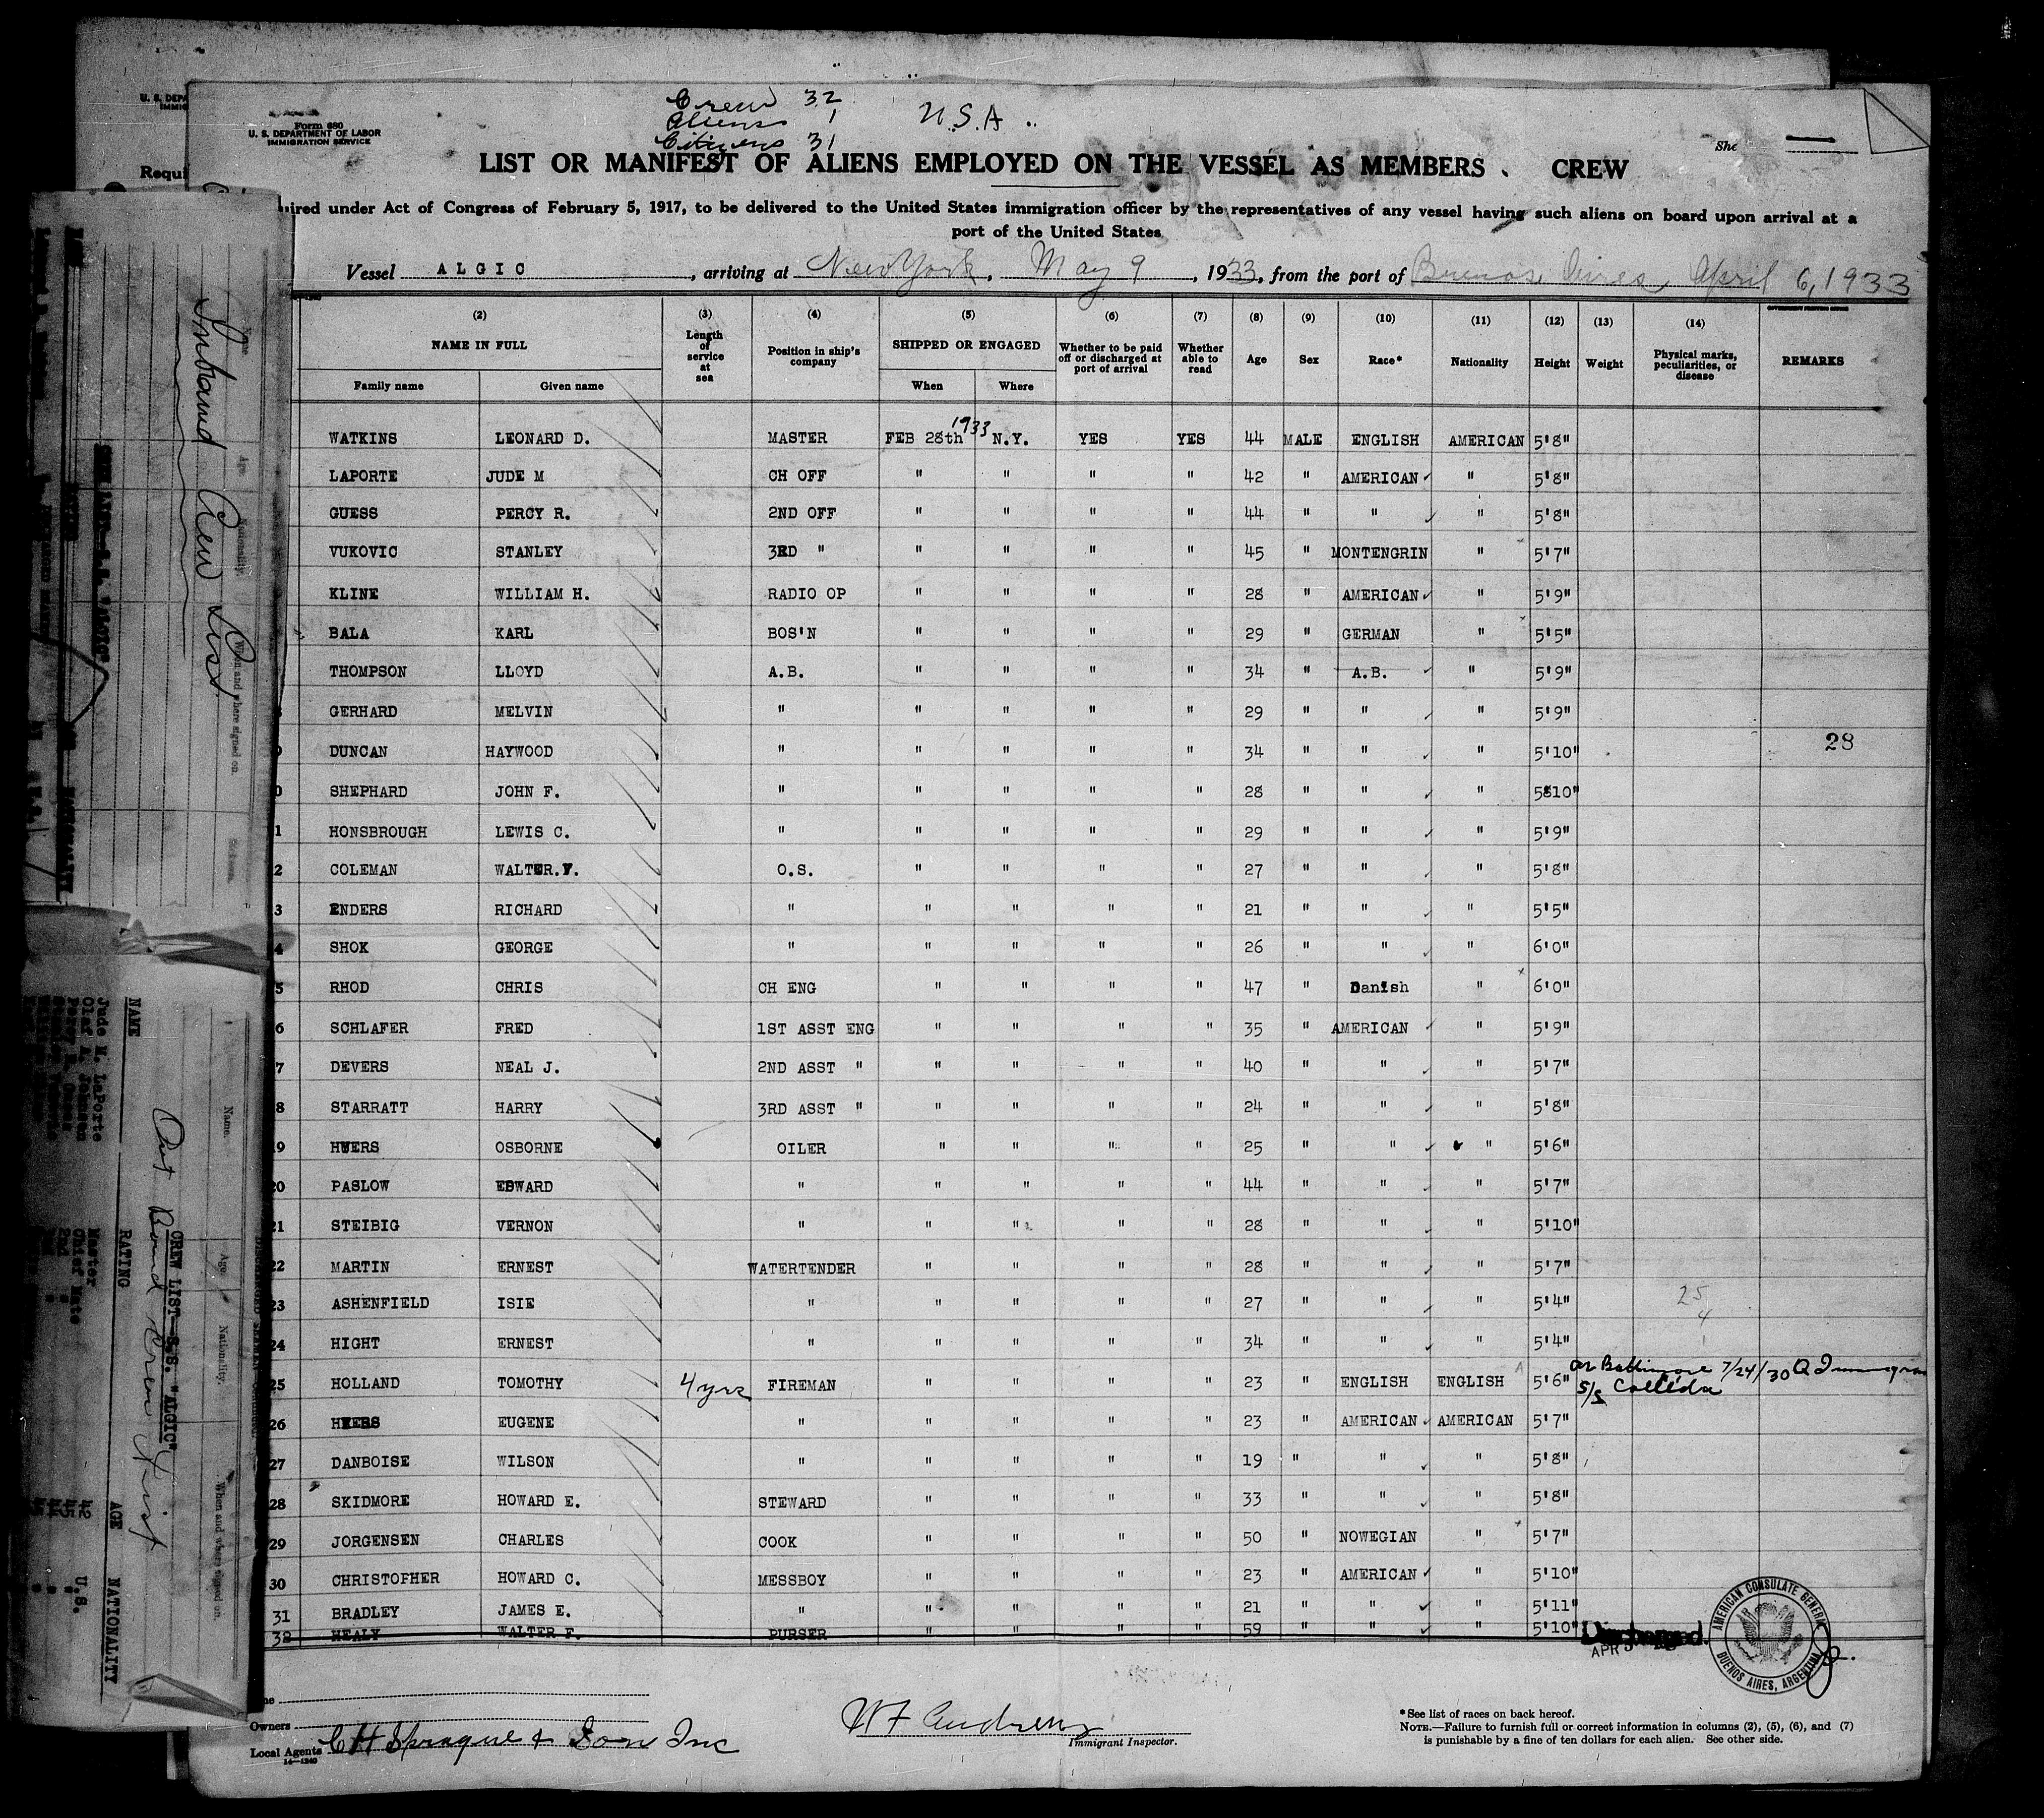 U. S. DEPA
IMMIG
Requi
Form 680
U. S. DEPARTMENT OF LABOR
IMMIGRATION SERVICE
Crew 32
Aliens 1
Citizens 31
U.S.A.
She
LIST OR MANIFEST OF ALIENS EMPLOYED ON THE VESSEL AS MEMBERS CREW
uired under Act of Congress of February 5, 1917, to be delivered to the United States immigration officer by the representatives of any vessel having such aliens on board upon arrival at a
port of the United States
Vessel ALGIC, arriving at New York, May 9, 1933, from the port of Buenos Aires, April 6, 1933
(2) (3) (4) (5) (6) (7) (8) (9) (10) (11) (12) (13) (14)
NAME IN FULL Length of service at sea Position in ship's company SHIPPED OR ENGAGED Whether to be paid off or discharged at port of arrival Whether able to read Age Sex Race* Nationality Height Weight Physical marks, peculiarities, or disease REMARKS
Family name Given name When Where
WATKINS LEONARD D. MASTER FEB 28th 1933 N.Y. YES YES 44 MALE ENGLISH AMERICAN 5'8"
LAPORTE JUDE M CH OFF " " " " 42 " AMERICAN " 5'8"
GUESS PERCY R. 2ND OFF " " " " 44 " " " 5'8"
VUKOVIC STANLEY 3RD " " " " " 45 " MONTENGRIN " 5'7"
KLINE WILLIAM H. RADIO OP " " " " 28 " AMERICAN " 5'9"
BALA KARL BOS'N " " " " 29 " GERMAN " 5'5"
THOMPSON LLOYD A.B. " " " " 34 " A.B. " 5'9"
GERHARD MELVIN " " " " " 29 " " " 5'9"
DUNCAN HAYWOOD " " " " " 34 " " " 5'10"
28
0 SHEPHARD JOHN F. " " " " " 28 " " " 5'10"
1 HONSBROUGH LEWIS C. " " " " " 29 " " " 5'9"
2 COLEMAN WALTER.F. O.S. " " " " 27 " " " 5'8"
3 ENDERS RICHARD " " " " " 21 " " " 5'5"
4 SHOK GEORGE " " " " " 26 " " " 6'0"
5 RHOD CHRIS CH ENG " " " " 47 " Danish " 6'0"
6 SCHLAFER FRED 1ST ASST ENG " " " " 35 " AMERICAN " 5'9"
7 DEVERS NEAL J. 2ND ASST " " " " " 40 " " " 5'7"
8 STARRATT HARRY 3RD ASST " " " " " 24 " " " 5'8"
19 OSBORNE OILER " " " " 25 " " " 5'6"
20 PASLOW EDWARD " " " " " 44 " " " 5'7"
21 STEIBIG VERNON " " " " " 28 " " " 5'10"
22 MARTIN ERNEST WATERTENDER " " " " 28 " " " 5'7"
23 ASHENFIELD ISIE " " " " " 27 " " " 5'4"
25
4
24 HIGHT ERNEST " " " " " 34 " " " 5'4"
25 HOLLAND TOMOTHY 4 yrs FIREMAN " " " " 23 " ENGLISH ENGLISH 5'6" arr Baltimore 7/24/30
S/S
26 EUGENE " " " " " 23 " AMERICAN AMERICAN 5'7"
27 DANBOISE WILSON " " " " " 19 " " " 5'8"
28 SKIDMORE HOWARD E. STEWARD " " " " 33 " " " 5'8"
29 JORGENSEN CHARLES COOK " " " " 50 " NOWEGIAN " 5'7"
30 CHRISTOFHER HOWARD C. MESSBOY " " " " 23 " AMERICAN " 5'10"
31 BRADLEY JAMES E. " " " " " 21 " " " 5'11"
32 HEALY WALTER F. PURSER " " " " 59 " " " 5'10" Discharged.
APR
AMERICAN CONSULATE GENERAL
BUENOS AIRES, ARGENTINA
Owners
Local Agents C H Sprague & Son Inc
14—1240
W F Andrews
Immigrant Inspector.
*See list of races on back hereof.
NOTE.—Failure to furnish full or correct information in columns (2), (5), (6), and (7)
is punishable by a fine of ten dollars for each alien. See other side.
Inbound Crew List
Name. Age. Nationality. When and where signed on.
Out Bound Crew List
CREW LIST S.S. "ALGIC"
NAME RATING AGE NATIONALITY
Jude M. LaPorte Master 42 U.S.
Olaf A. Johansen Chief Mate
Percy R. Guess 2nd "
Name. Age. Nationality. When and where signed on.